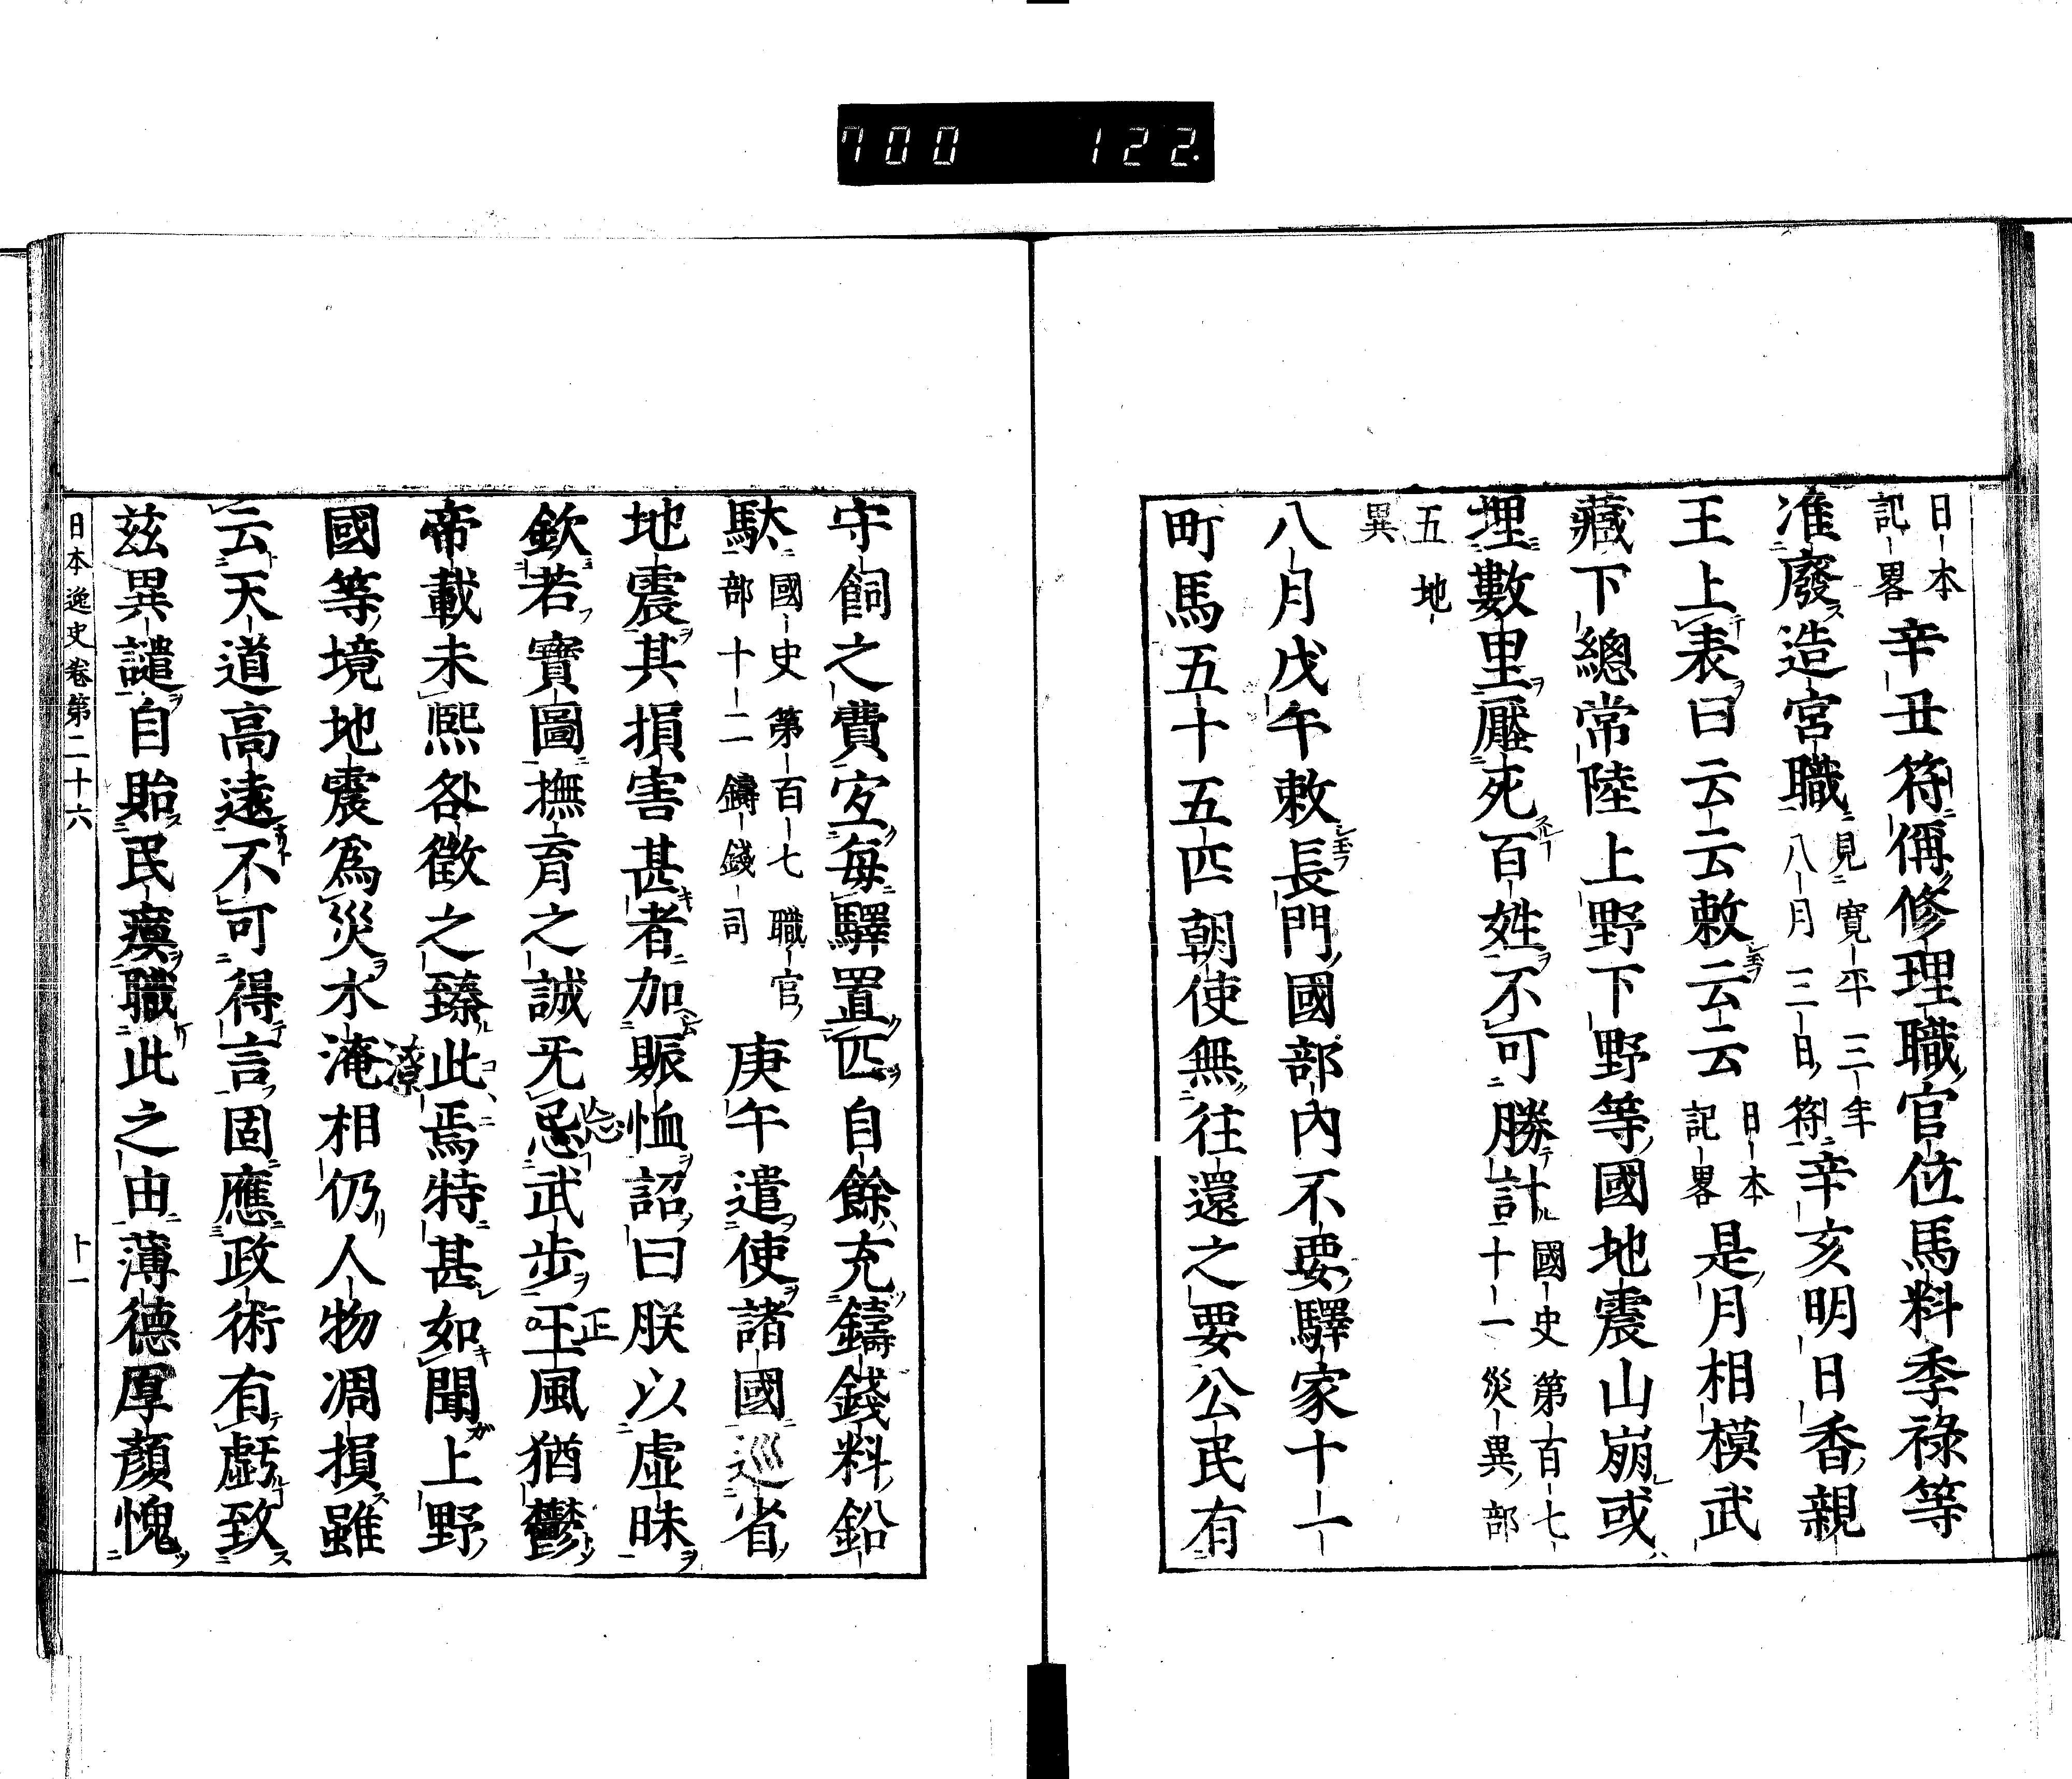 700 122.
日本
記畧
辛丑符偁修理職官位馬料季祿等
准廢造宮職
見寬平三年
八月三日符
辛亥明日香親
王上表曰云云敕云云
日本
記畧
是月相模武
藏下總常陸上野下野等國地震山崩或
埋數里壓死百姓不可勝計
國史第百七
十一災異部
五地
異
八月戊午敕長門國部內不要驛家十一
町馬五十五匹朝使無往還之要公民有
守飼之費宜每驛置匹自餘充鑄錢料鉛
駄
國史第百七職官
部十二鑄錢司
庚午遣使諸國巡省
地震其損害甚者加賑恤詔曰朕以虛昧
欽若寶圖撫育之誠无忌武步王風猶鬱
忘
正
帝載未熙咎徵之臻此焉特甚如聞上野
國等境地震爲災水淹相仍人物凋損雖
潦
云天道高遠不可得言固應政術有虧致
茲異譴自貽民瘼職此之由薄德厚顏愧
日本逸史卷第二十六
十一